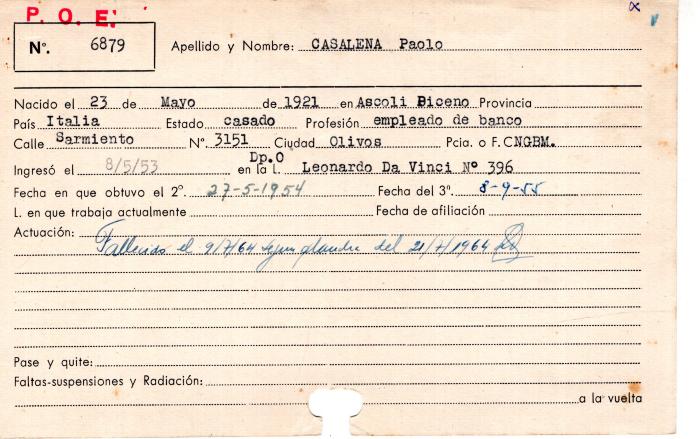 P. O. E.
x v
Nº. 6879
Apellido y Nombre: CASALENA Paolo
Nacido el 23 de Mayo de 1921 en Ascoli Piceno Provincia
País Italia Estado casado Profesión empleado de banco
Calle Sarmiento Nº 3151 Ciudad Olivos Pcia. o F.C NGBM.
Ingresó el 8/5/53 en la L. Dp.O Leonardo Da Vinci Nº 396
Fecha en que obtuvo el 2º. 27-5-1954 Fecha del 3º. 8-9-55
L. en que trabaja actualmente Fecha de afiliación
Actuación: Fallecido el 9/7/64 según planilla del 21/7/1964
Pase y quite:
Faltas-suspensiones y Radiación:
a la vuelta